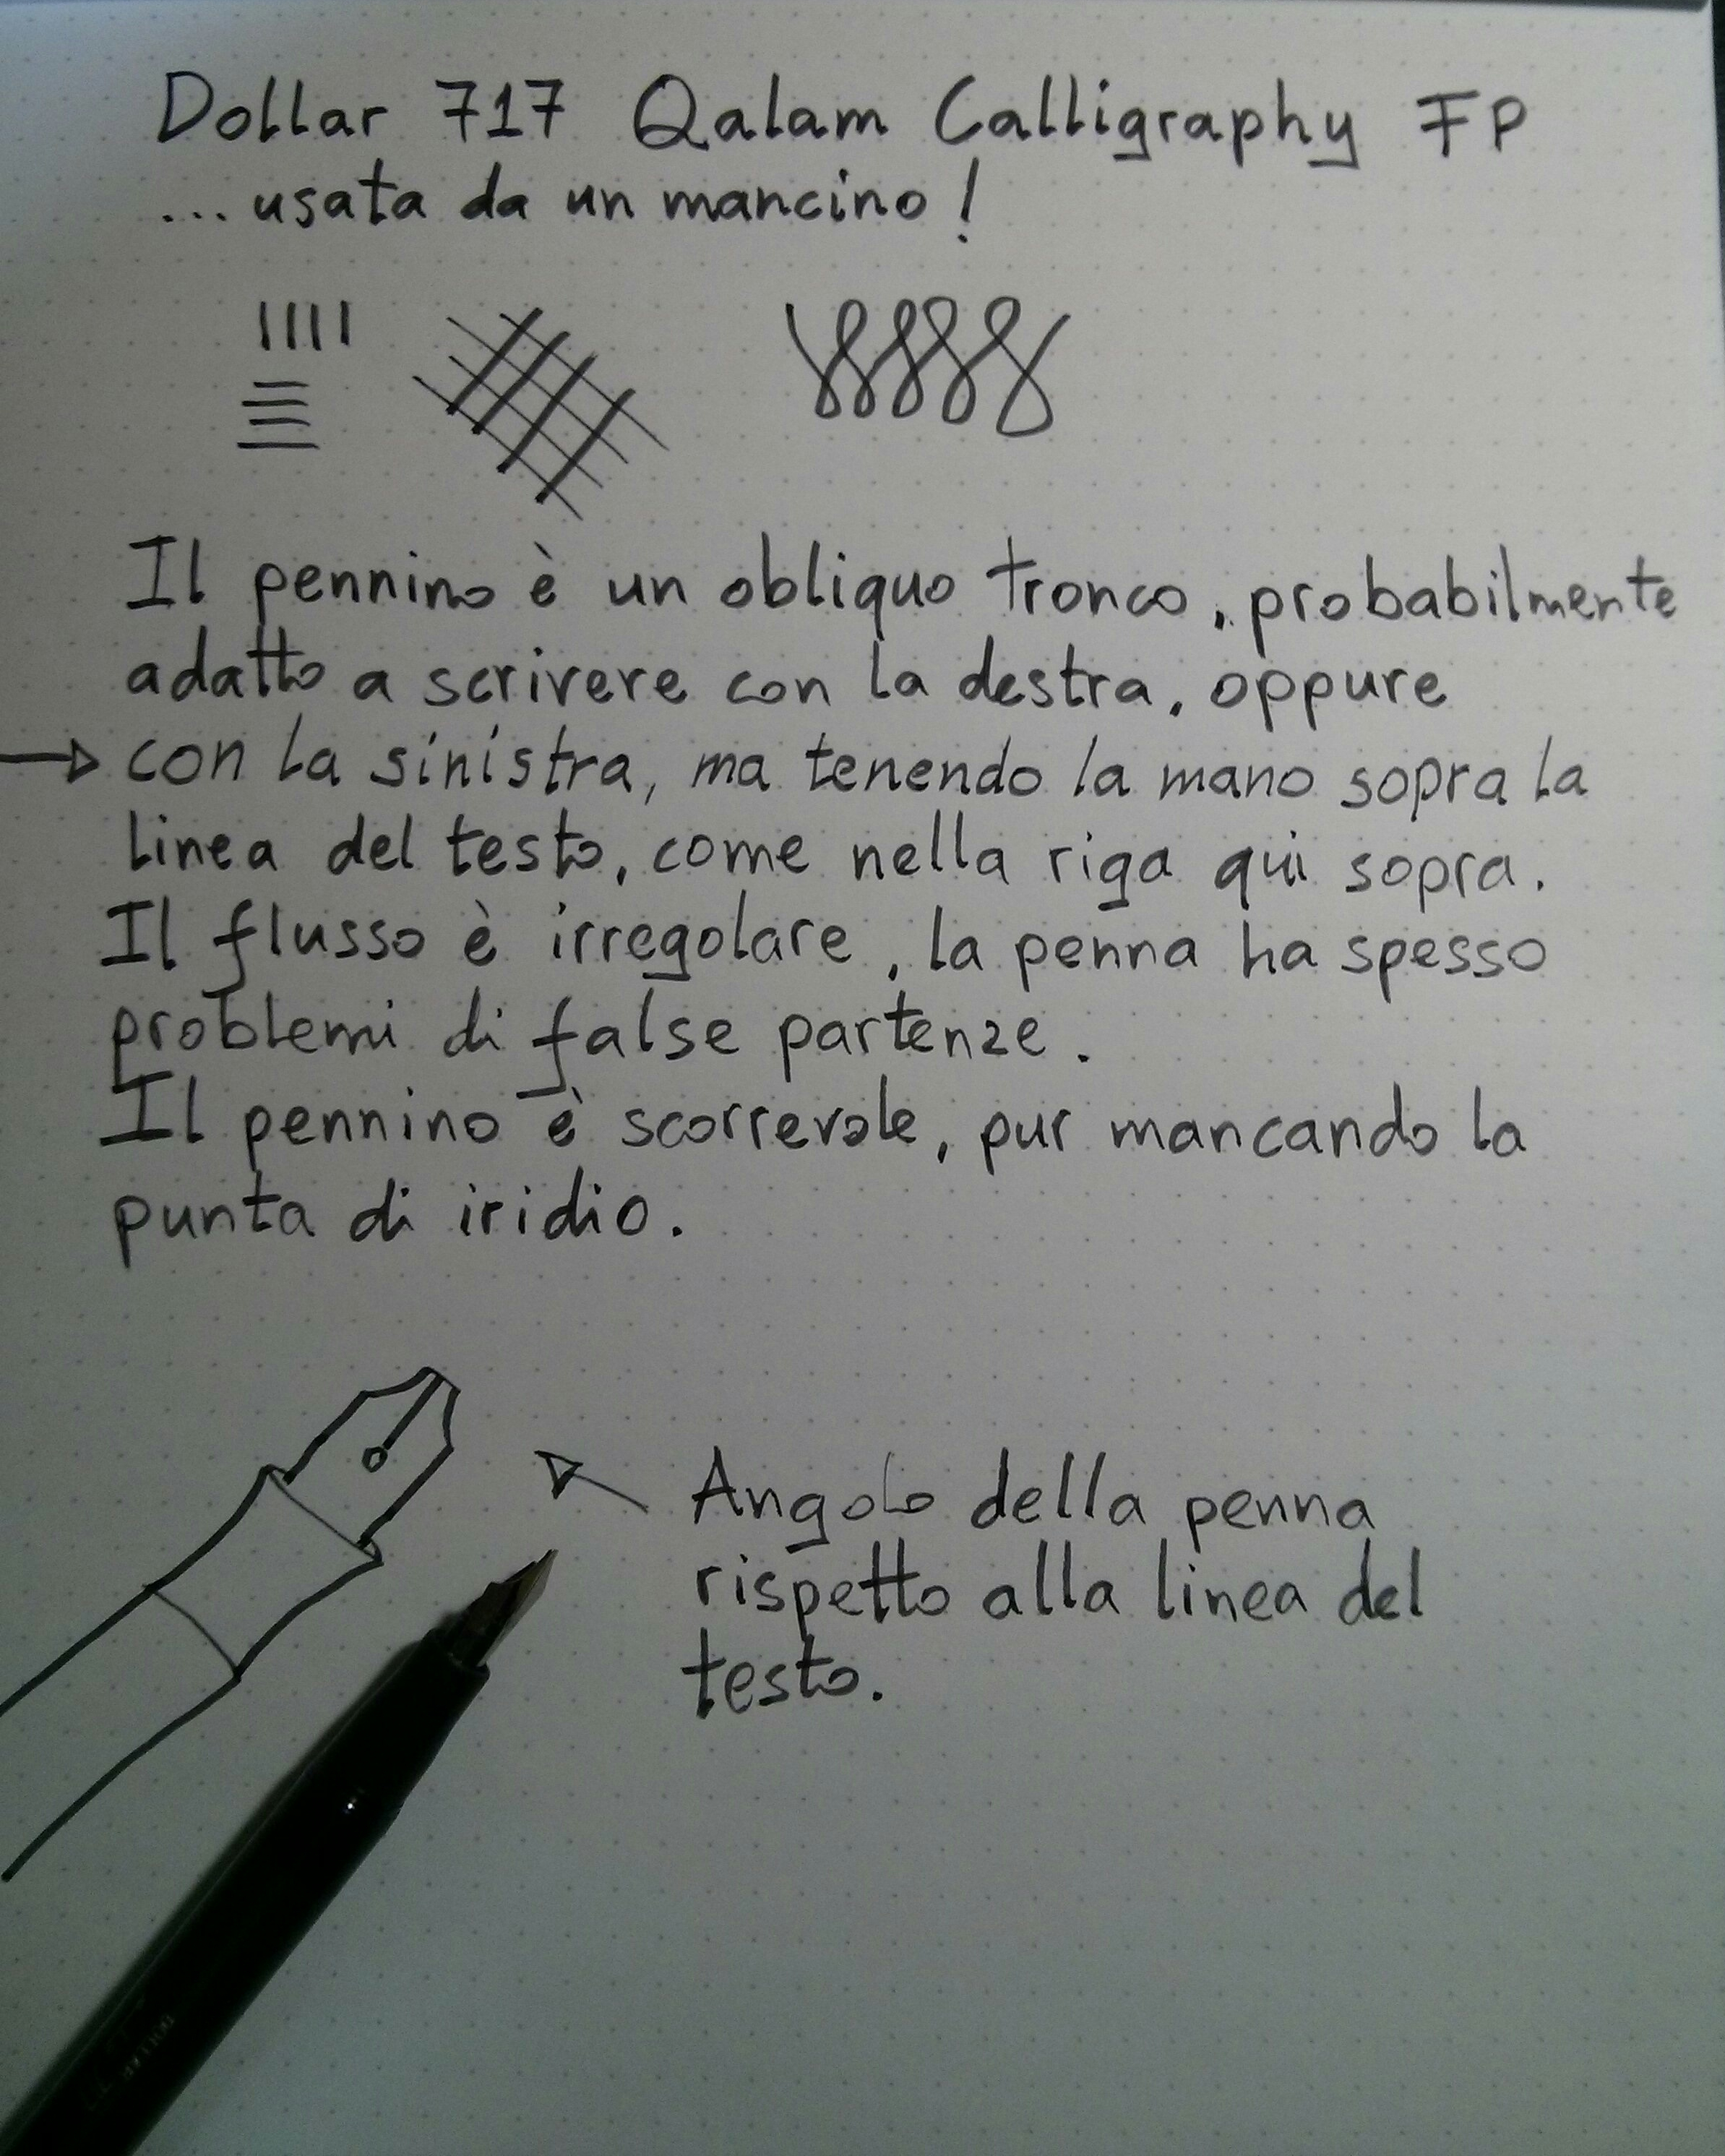 Dollar 717 Qalam Calligraphy FP
... usata da un mancino!
Il pennino è un obliquo tronco, probabilmente
adatto a scrivere con la destra, oppure
→ con la sinistra, ma tenendo la mano sopra la
linea del testo, come nella riga qui sopra.
Il flusso è irregolare, la penna ha spesso
problemi di false partenze.
Il pennino è scorrevole, pur mancando la
punta di iridio.
Angolo della penna
rispetto alla linea del
testo.
DOLLAR